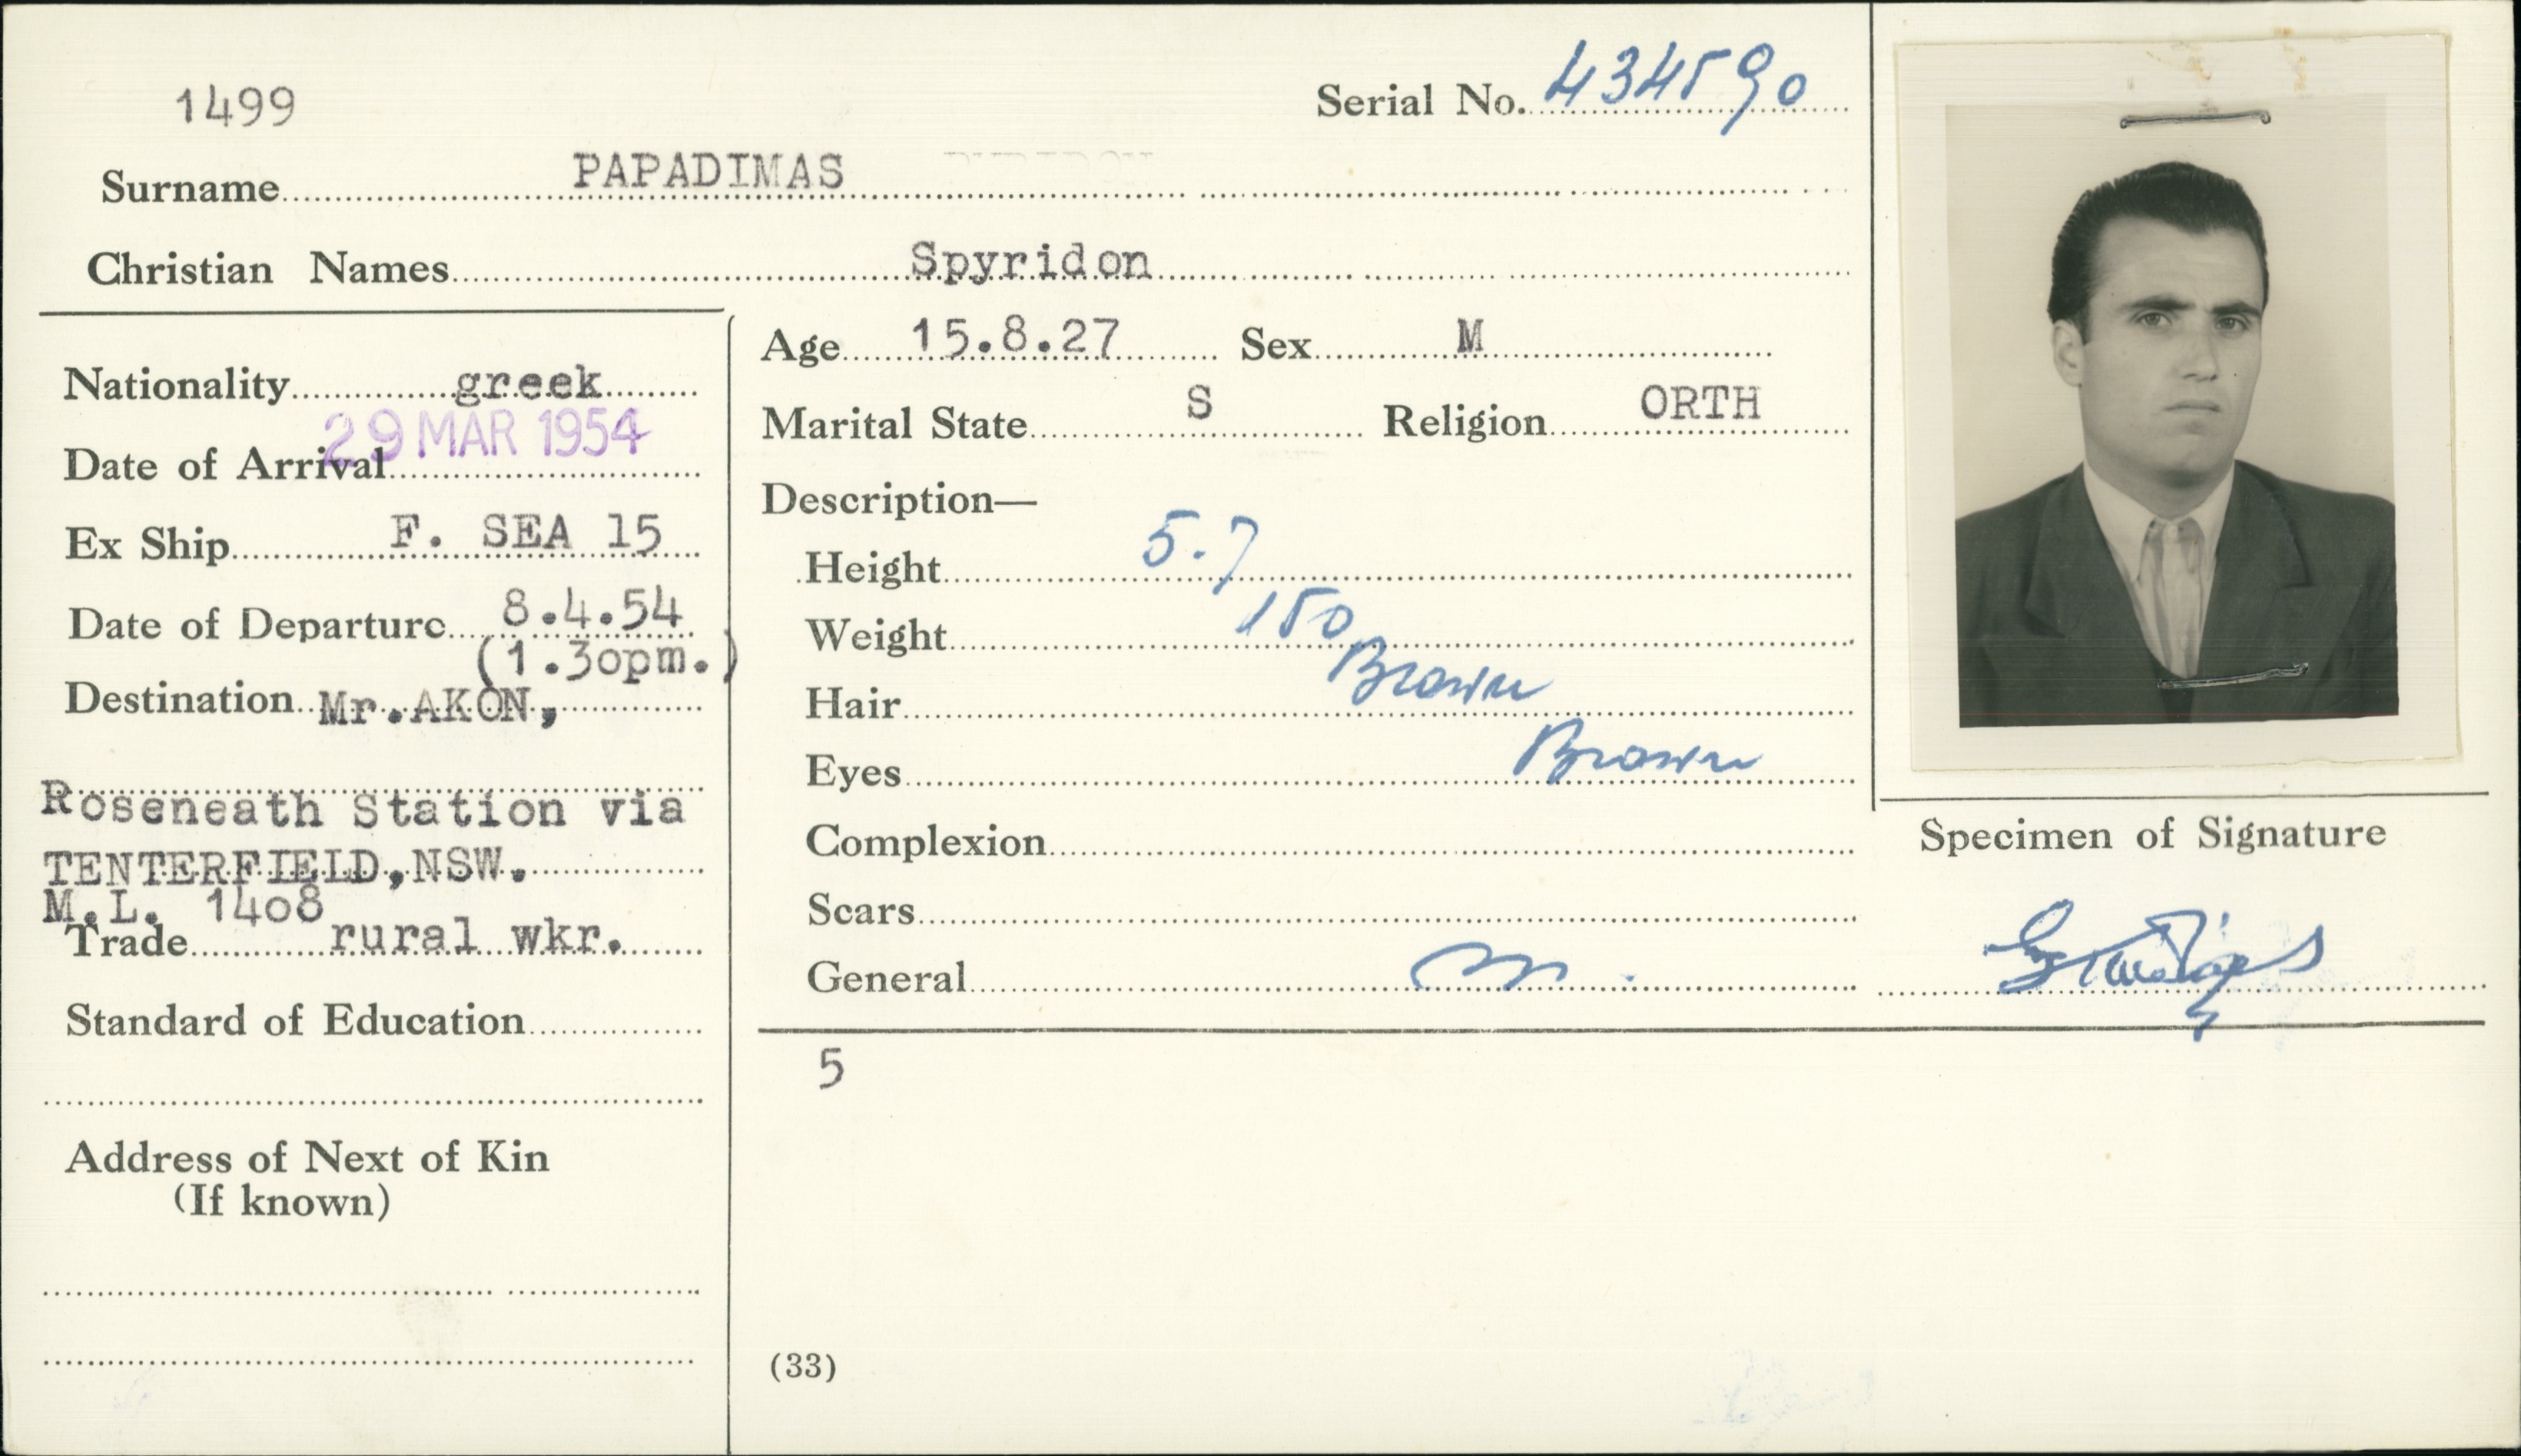 1499
Serial No. 434590
Surname PAPADIMAS
Christian Names Spyridon
Nationality greek
Date of Arrival 29 MAR 1954
Ex Ship F. SEA 15
Date of Departure 8.4.54
(1.3opm.)
Destination Mr.AKON,
Roseneath Station via
TENTERFIELD,NSW.
M.L. 14o8
Trade rural wkr.
Standard of Education
Address of Next of Kin
(If known)
Age 15.8.27 Sex M
Marital State S Religion ORTH
Description—
Height 5.7
Weight 150
Hair Brown
Eyes Brown
Complexion
Scars
General
5
(33)
Specimen of Signature